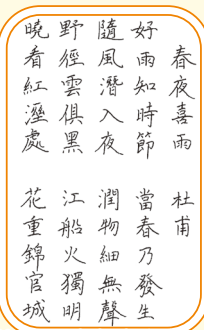 春夜喜雨 杜甫
好雨知時節 當春乃發生
隨風潛入夜 潤物細無聲
野徑雲俱黑 江船火獨明
曉看紅溼處 花重錦官城